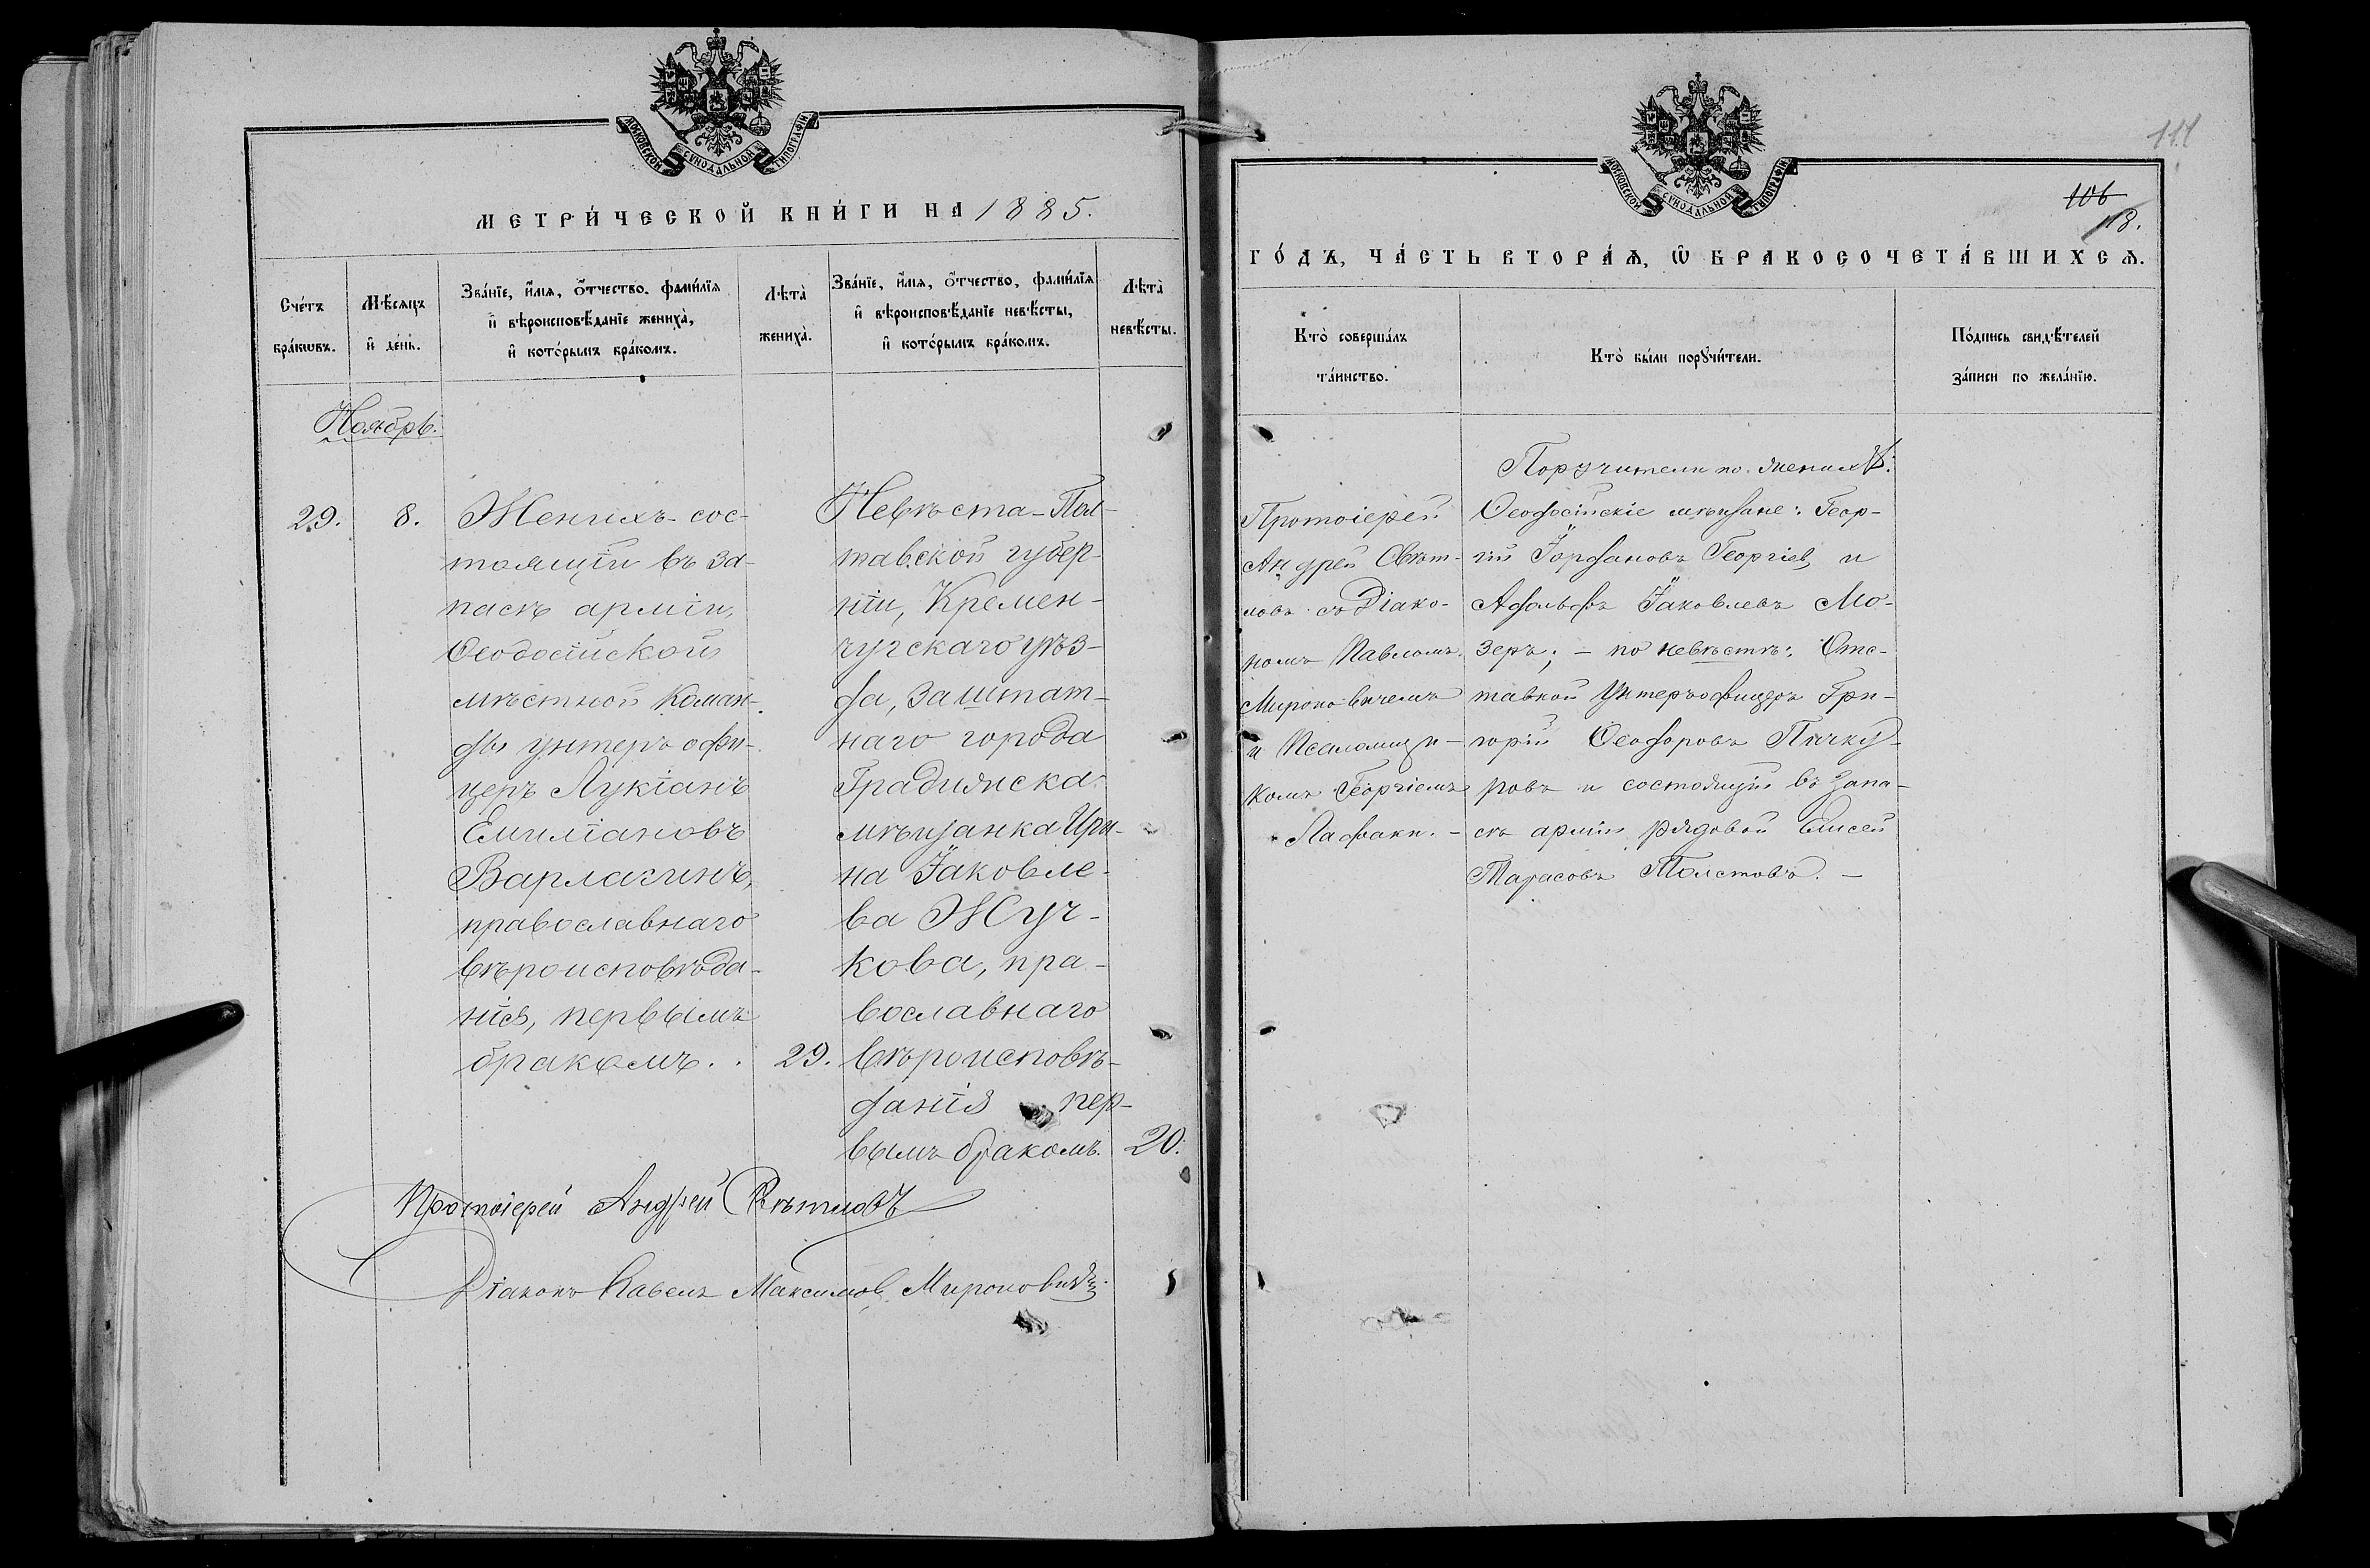 МОСКОВСКОЙ СѴНОДАЛЬНОЙ ТИПОГРАФІИ
МЕТРИ́ЧЕСКОЙ КНИ́ГИ НА 1885.
Сче́тъ бра́кωвъ.
Мѣ́сяцъ и҆ де́нь.
Зва́нїе, и҆́мѧ, ѻ҆́тчество, фами́лїѧ
и҆ вѣроисповѣ́данїе жениха̀,
и҆ кото́рымъ бра́комъ.
Лѣта̀
жениха̀.
Зва́нїе, и҆́мѧ, ѻ҆́тчество, фами́лїѧ
и҆ вѣроисповѣ́данїе невѣ́сты,
и҆ кото́рымъ бра́комъ.
Лѣта̀
невѣ́сты.
Ноябрь.
29.
8.
Женихъ - сос-
тоящій въ за-
пасѣ арміи,
Ѳеодосійской
мѣстной коман-
ды унтеръ офи-
церъ Лукіанъ
Емиліановъ
Варлагинъ,
православнаго
вѣроисповѣда-
нія, первымъ
бракомъ.
29.
Невѣста - Пол-
тавской губер-
ніи, Кремен-
чугскаго уѣз-
да, заштат-
наго города
Градижска
мѣщанка Ири-
на Іаковле-
ва Жуч-
кова, пра-
вославнаго
вѣроисповѣ-
данія пер-
вымъ бракомъ.
20.
Протоіерей Андрей Свѣтловъ
Діаконъ Павелъ Максимов Мироновичъ
МОСКОВСКОЙ СѴНОДАЛЬНОЙ ТИПОГРАФІИ
111
106
113.
ГО́ДЪ, ЧА́СТЬ ВТОРА́Ѧ, Ѽ БРАКОСОЧЕТА́ВШИХСѦ.
Кто̀ соверша́лъ
та́инство.
Кто̀ бы́ли порꙋчи́тели.
По́дпись свидѣ́телей
за́писи по жела́нїю.
Протоіерей
Андрей Свѣт-
ловъ съ Діако-
номъ Павломъ
Мироновичемъ
и Псаломщи-
комъ Георгіемъ
Лафаки.
Поручители по женихѣ:
Ѳеодосійскіе мѣщане: Геор-
гій Іордановъ Георгіев и
Адольфъ Іаковлевъ Мо-
зеръ; - по невѣстѣ: Отс-
тавной унтеръ-офицеръ Гри-
горій Ѳеодоровъ Пичку-
ровъ и состоящій въ запа-
сѣ арміи рядовой Елисей
Тарасовъ Толстовъ. -